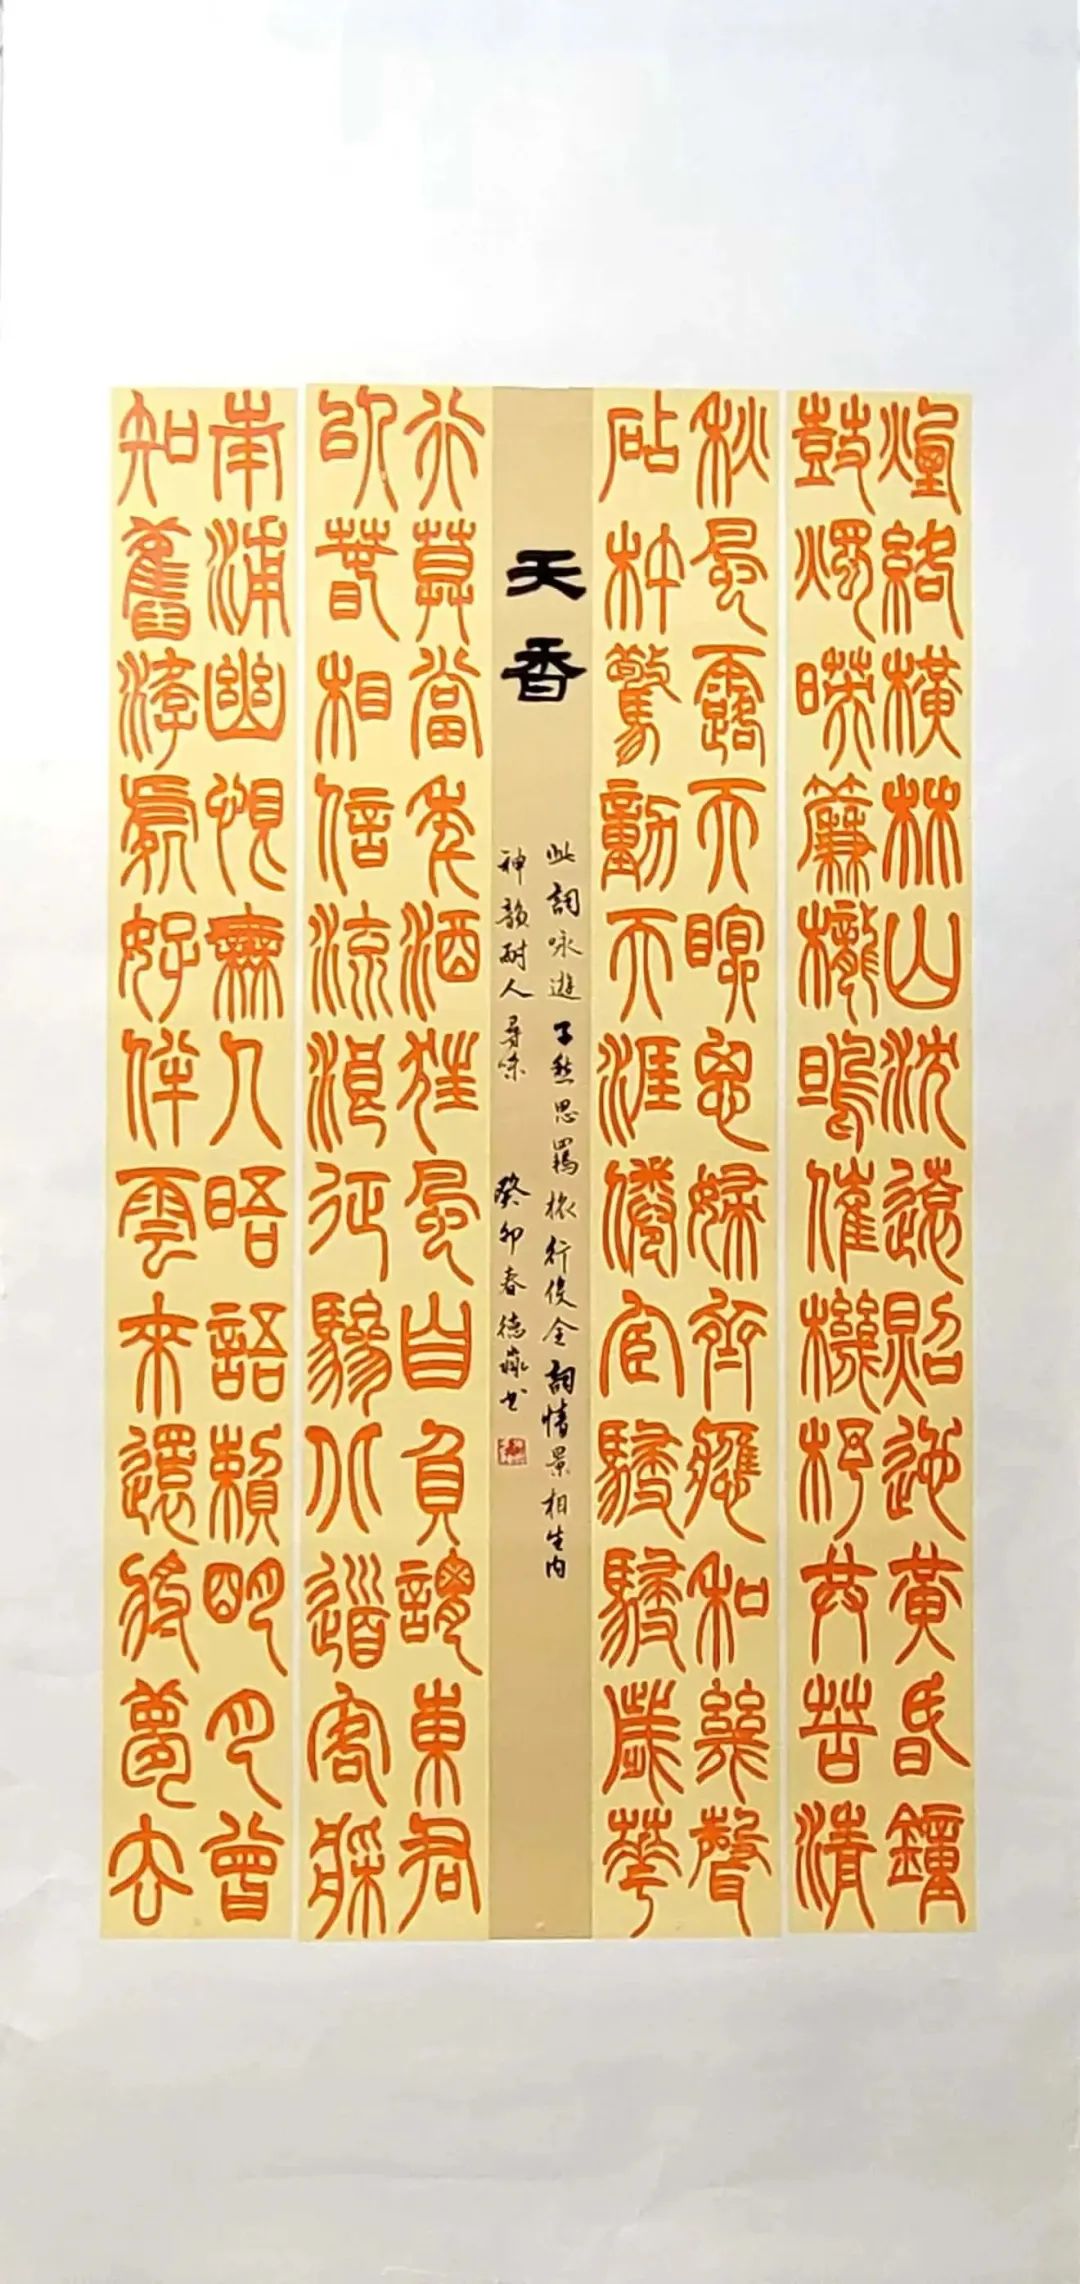 煙絡橫林山沈遠照迤黃昏鐘
鼓燭映簾櫳鳴催機杼共苦清
秋風露不眠思婦齊應和幾聲
砧杵驚動天涯倦宦駸駸歲華
天香
此詞咏遊子愁思羈旅行役全詞情景相生内
神韻耐人尋味 癸卯春德書
行莫當年酒狂風自負謂東君
以春相流浪征驂北道客檣
南浦幽恨無人晤語賴明月曾
知舊游處好伴雲來還將夢去